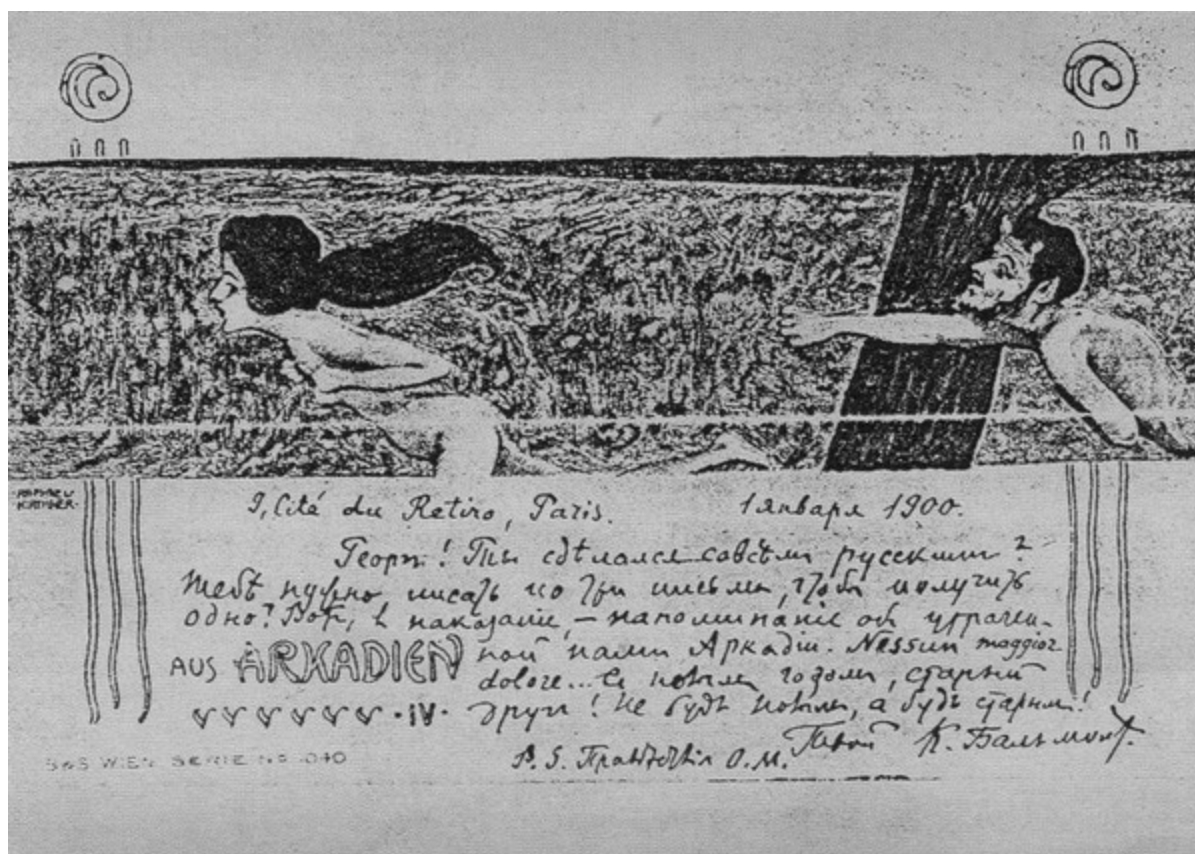 RAPHAEL
KIRCHNER
9, Cité du Retiro, Paris. 1 января 1900.
Георг! Ты сдѣлался совсѣмъ русскимъ?
Тебѣ нужно писать по три письма, чтобы получить
одно? Вотъ, въ наказаніе, – напоминаніе объ утрачен-
ной нами Аркадіи. Nessun maggior
AUS ARKADIEN
dolore... Съ новымъ годомъ, старый
другъ! Не будь новымъ, а будь старымъ!
·IV·
Твой К. Бальмонтъ.
P. S. О. М.
S&S WIEN SERIE No 040